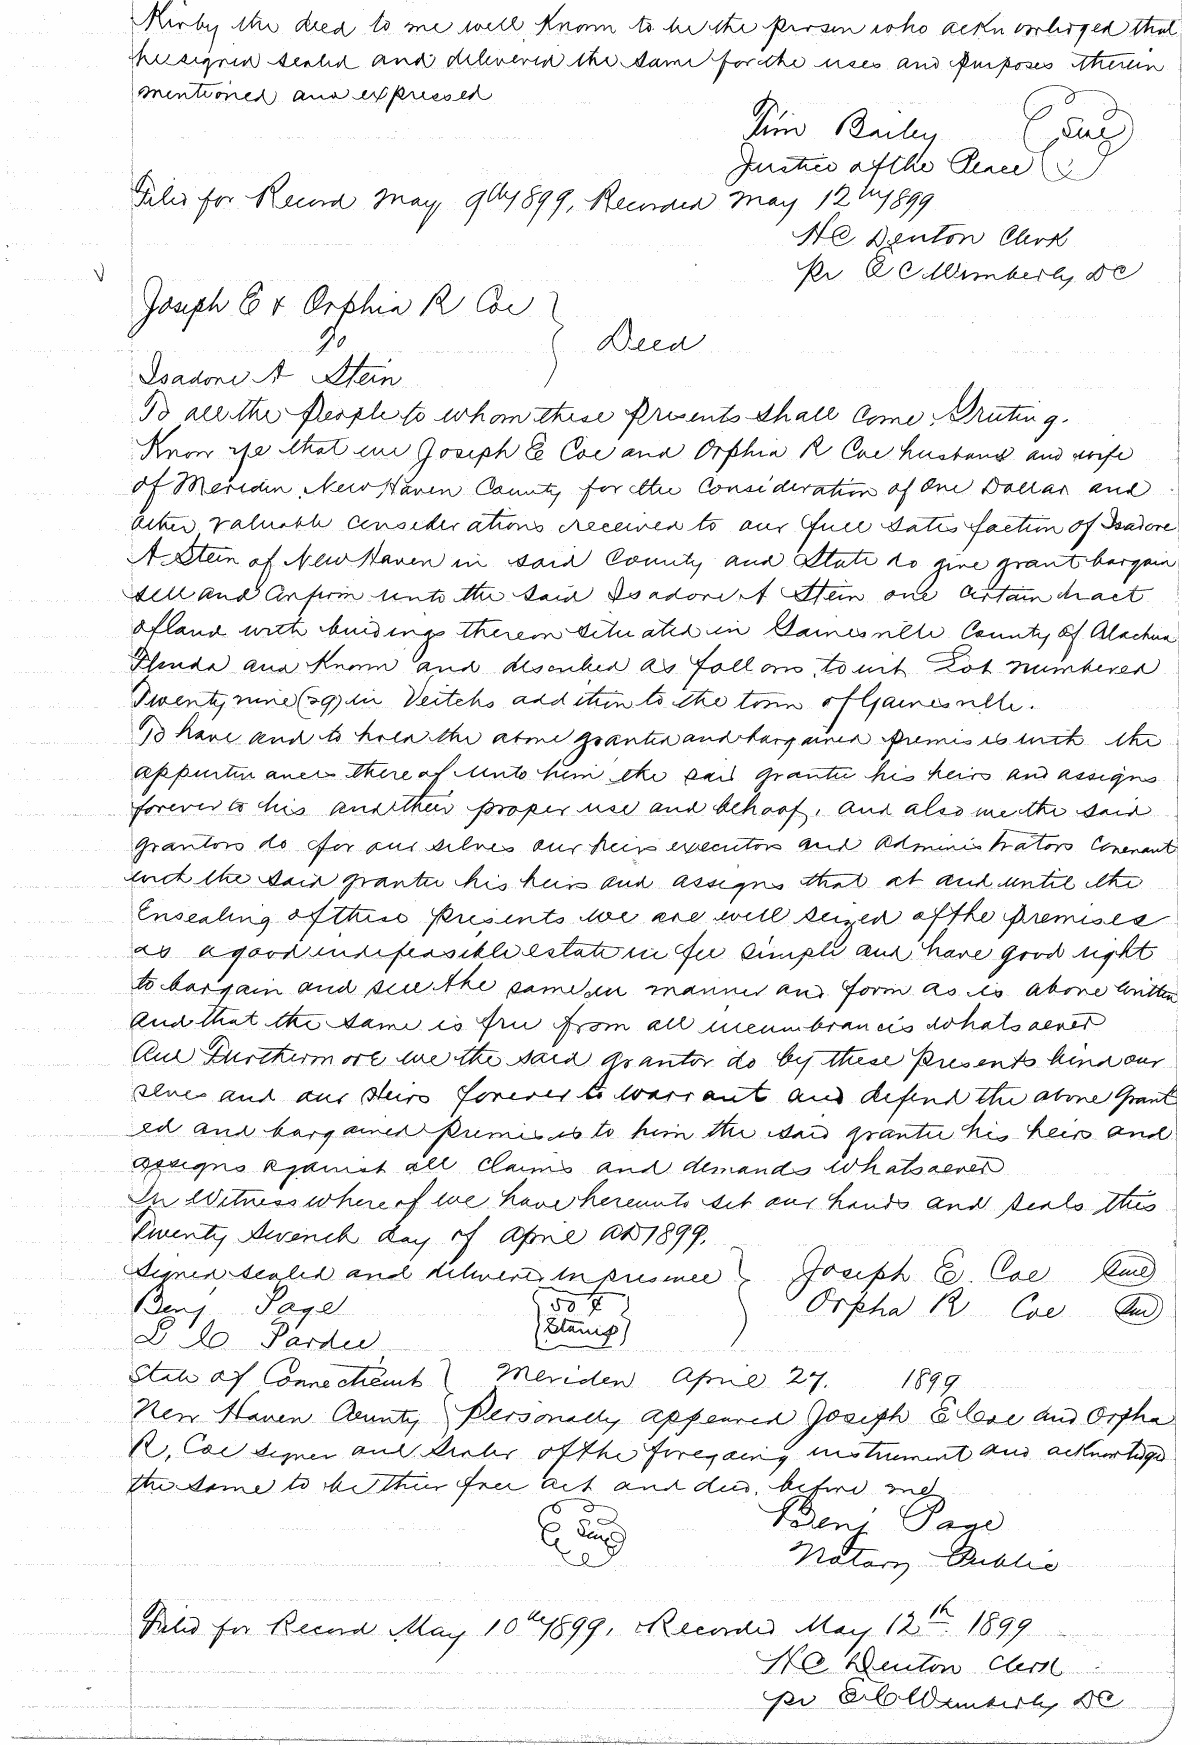 Kirby the deed to me well Known to be the person who acknowledged that
he signed sealed and delivered the same for the uses and purposes therein
mentioned and expressed
Tim Bailey (Seal)
Justice of the Peace
Filed for Record May 9th 1899, Recorded May 12th 1899
H C Denton Clerk
pr E C Wimberly DC
Joseph E & Orphia R Coe
To } Deed
Isadore A Stein
To all the People to whom these Presents shall Come, Greeting.
Know ye that we Joseph E Coe and Orphia R Coe husband and wife
of Meriden New Haven County for the Consideration of One Dollar and
other valuable considerations received to our full satisfaction of Isadore
A Stein of New Haven in said County and State do give grant bargain
sell and Confirm unto the said Isadore A Stein one certain tract
of land with buidings thereon situated in Gainesville County of Alachua
Florida and Known and described as follows, to wit Lot numbered
Twenty nine (29) in Veitchs addition to the town of Gainesville.
To have and to hold the above granted and bargained premises with the
appurtenances thereof unto him the said grantee his heirs and assigns
forever to his and their proper use and behoof, and also we the said
grantors do for our selves our heirs executors and Administrators Covenant
with the said grantee his heirs and assigns that at and until the
Ensealing of these presents we are well seized of the premises
as a good indefeasible estate in fee simple and have good right
to bargain and sell the same in manner and form as is above written
and that the same is free from all incumbrances whatsoever
And Furthermore we the said grantor do by these presents bind our
selves and our Heirs forever to warrant and defend the above Grant
ed and bargained premises to him the said grantee his heirs and
assigns against all claims and demands whatsoever
In Witness whereof we have hereunto set our hands and seals this
Twenty Seventh day of April AD 1899.
Signed sealed and delivered in presence } Joseph E. Coe (Seal)
Benj Page {50¢ Orpha R Coe (Seal)
L C Pardee {Stamp}
State of Connecticut } Meriden April 27. 1899
New Haven County } Personally appeared Joseph E Coe and Orpha
R. Coe signer and Sealer of the foregoing instrument and acknowledge
the same to be their free act and deed, before me
(Seal) Benj Page
Notary Public
Filed for Record May 10th 1899, Recorded May 12th 1899
H C Denton Clerk
pr E C Wimberly DC